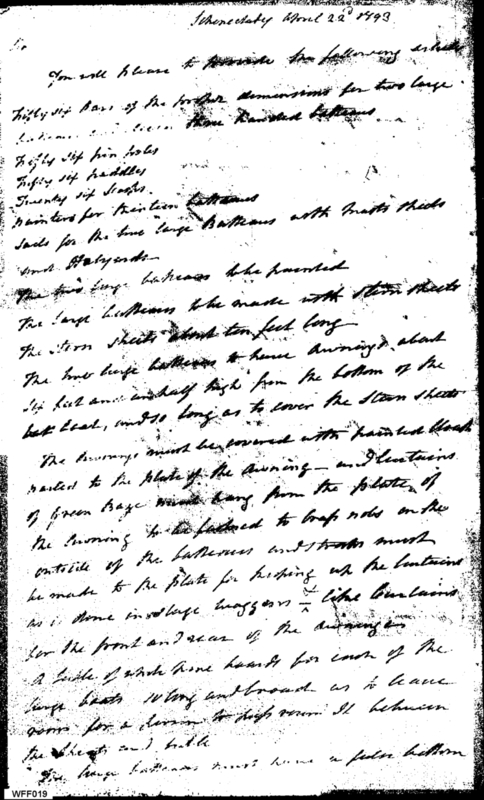 Schenectady April 22d 1793
Sir
You will please to provide the following articles
Fifty six Oars of the proper dimensions for two large
batteaus and eleven three handed batteaus
Fifty six poles
Fifty six paddles
Twenty six Scoops
painters for thirteen batteaus
Sails for the two large Batteaus with masts Sheets
and Halyards
The two large batteaus to be painted
The large batteaus to be made with Stern Sheets
The Stern Sheets about ten feet long
The two large batteaus to have Awnings about
Six feet and an half high from the bottom of the
boat, and so long as to cover the Stern Sheets
The Awnings must be covered with painted Cloth
nailed to the plate of the Awning and Curtains
of green Baze must hang from the plate of
the Awning to be fastned to brass nobs on the
outside of the batteaus and must
be made to the plate for keeping up the Curtains
as is done in Stage waggons like Curtains
for the front and rear of the Awnings
A table of boards for each of the
large boats so long and broad as to leave
room for a person to pass round it between
the Sheets and table
The large batteaus must have a false bottom
WFF019